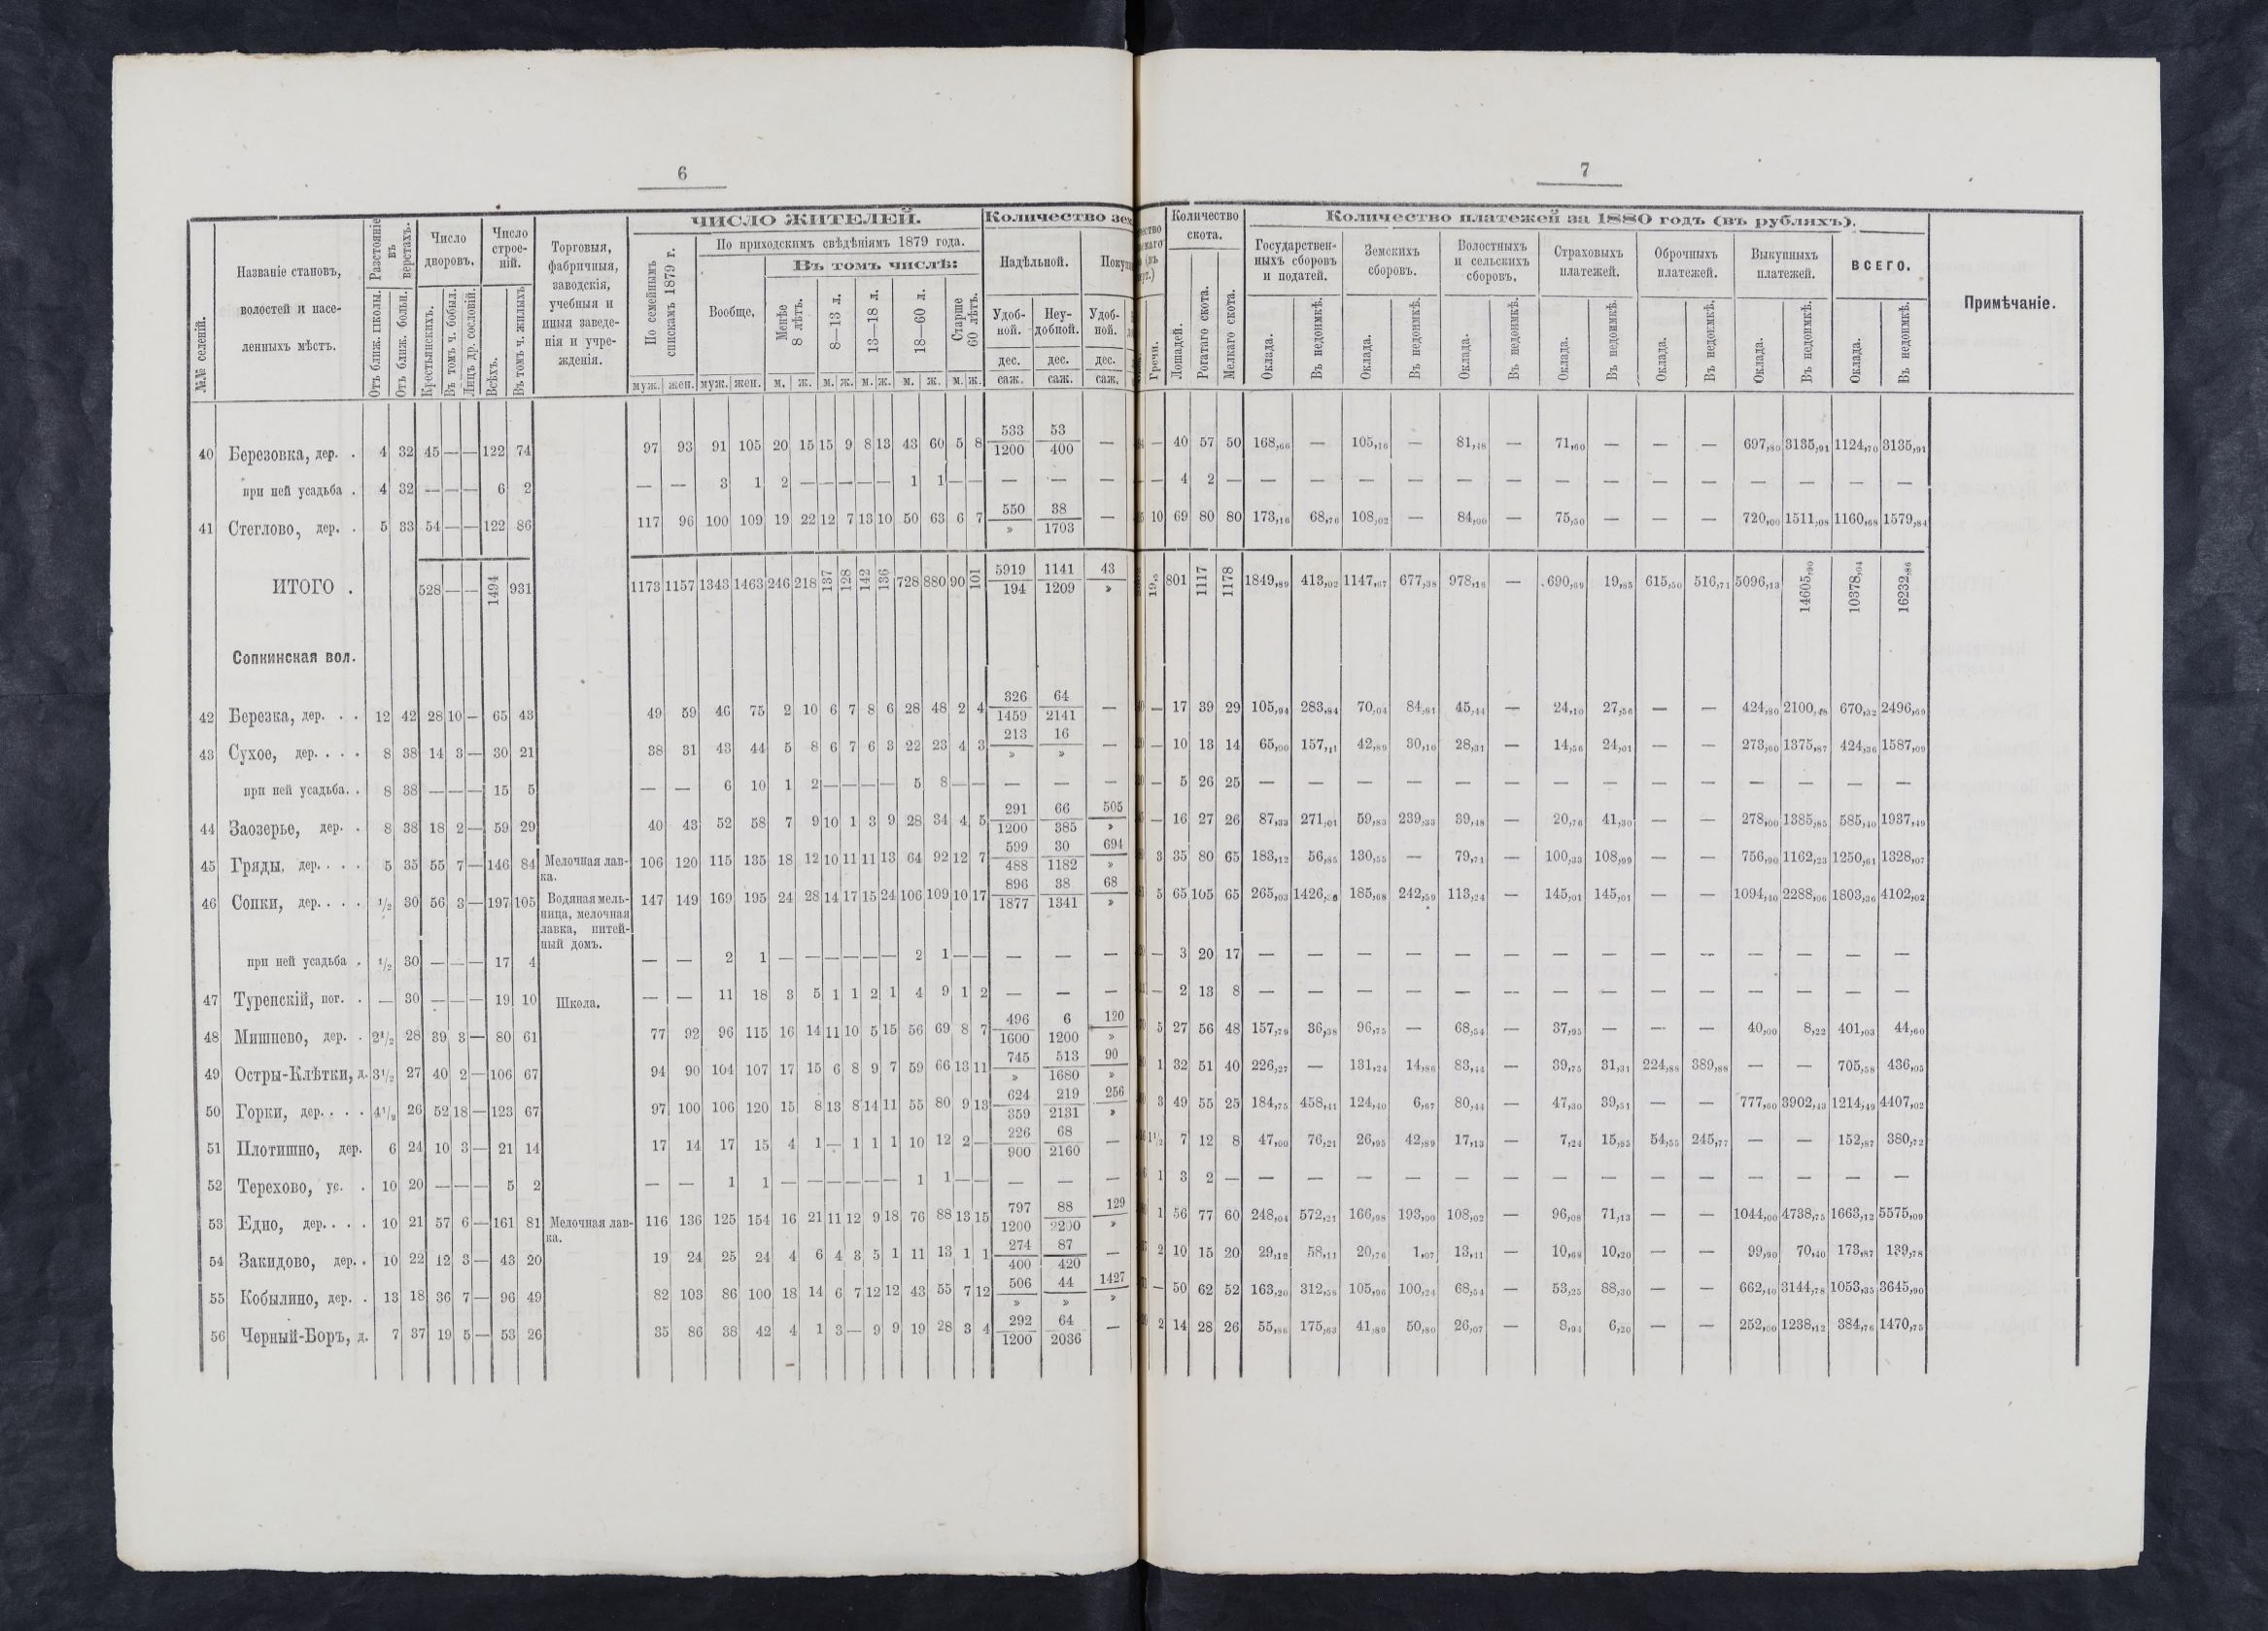 6
7
ЧИСЛО ЖИТЕЛЕЙ.
Количество
Количество скота.
Количество платежей за 1880 годъ (въ рубляхъ).
№№ селеній.
Названіе становъ, волостей и населенныхъ мѣстъ.
Разстояніе въ верстахъ.
Отъ ближ. школы.
Отъ ближ. больн.
Число дворовъ.
Крестьянскихъ.
Въ томъ ч. бобыл.
Лицъ др. сословій.
Число строеній.
Всѣхъ.
Въ томъ ч. жилыхъ
Торговыя, фабричныя, заводскія, учебныя и иныя заведенія и учрежденія.
По семейнымъ спискамъ 1879 г.
По приходскимъ свѣдѣніямъ 1879 года.
Вообще.
Въ томъ числѣ:
Менѣе 8 лѣтъ.
8—13 л.
13—18 л.
18—60 л.
Старше 60 лѣтъ.
муж. жен. муж. жен. м. ж. м. ж. м. ж. м. ж. м. ж.
Надѣльной.
Удобной.
Неудобной.
Удобной.
дес. дес. дес.
саж. саж. саж.
Гречи.
Лошадей.
Рогатаго скота.
Мелкаго скота.
Государственныхъ сборовъ и податей.
Земскихъ сборовъ.
Волостныхъ и сельскихъ сборовъ.
Страховыхъ платежей.
Оброчныхъ платежей.
Выкупныхъ платежей.
ВСЕГО.
Оклада. Въ недоимкѣ. Оклада. Въ недоимкѣ. Оклада. Въ недоимкѣ. Оклада. Въ недоимкѣ. Оклада. Въ недоимкѣ. Оклада. Въ недоимкѣ. Оклада. Въ недоимкѣ.
Примѣчаніе.
40 Березовка, дер. . 4 32 45 — — 122 74 97 93 91 105 20 15 15 9 8 13 43 60 5 8 533/1200 53/400 — — 40 57 50 168,66 — 105,16 — 81,48 — 71,60 — — — 697,80 3135,91 1124,70 3135,91
при ней усадьба . 4 32 — — — 6 2 — — 3 1 2 — — — — — 1 1 — — — — — — 4 2 — — — — — — — — — — — — — — —
41 Стеглово, дер. . 5 33 54 — — 122 86 117 96 100 109 19 22 12 7 13 10 50 63 6 7 550/» 38/1703 — 10 69 80 80 173,16 68,76 108,02 — 84,00 — 75,50 — — — 720,00 1511,08 1160,68 1579,84
ИТОГО . 528 — — 1494 931 1173 1157 1343 1463 246 218 137 128 142 136 728 880 90 101 5919/194 1141/1209 43/» 801 1117 1178 1849,89 413,02 1147,67 677,38 978,16 — 690,69 19,85 615,50 516,71 5096,13 14605,90 10378,04 16232,86
Сопкинская вол.
42 Березка, дер. . . 12 42 28 10 — 65 43 49 59 46 75 2 10 6 7 8 6 28 48 2 4 326/1459 64/2141 — — 17 39 29 105,94 283,84 70,04 84,81 45,44 — 24,10 27,56 — — 424,80 2100,48 670,32 2496,69
43 Сухое, дер. . . . 8 38 14 3 — 30 21 38 31 43 44 5 8 6 7 6 3 22 23 4 3 213/» 16/» — — 10 13 14 65,00 157,11 42,89 30,10 28,31 — 14,56 24,01 — — 273,60 1375,87 424,36 1587,09
при ней усадьба. . 8 38 — — — 15 5 — — 6 10 1 2 — — — — 5 8 — — — — — — 5 26 25 — — — — — — — — — — — — — —
44 Заозерье, дер. . 8 38 18 2 — 59 29 40 43 52 58 7 9 10 1 3 9 28 34 4 5 291/1200 66/385 505/» — 16 27 26 87,33 271,01 59,83 239,33 39,48 — 20,76 41,30 — — 278,00 1385,85 585,40 1937,49
45 Гряды, дер. . . . 5 35 55 7 — 146 84 Мелочная лавка. 106 120 115 135 18 12 10 11 11 13 64 92 12 7 599/488 30/1182 694/» 3 35 80 65 183,12 56,85 130,55 — 79,71 — 100,33 108,99 — — 756,90 1162,23 1250,61 1328,07
46 Сопки, дер. . . . 1/2 30 56 3 — 197 105 Водяная мельница, мелочная лавка, питейный домъ. 147 149 169 195 24 28 14 17 15 24 106 109 10 17 896/1877 38/1341 68/» 5 65 105 65 265,03 1426,36 185,68 242,59 113,24 — 145,01 145,01 — — 1094,40 2288,06 1803,36 4102,02
при ней усадьба . 1/2 30 — — — 17 4 — — 2 1 — — — — — — 2 1 — — — — — — 3 20 17 — — — — — — — — — — — — — —
47 Туренскій, пог. . — 30 — — — 19 10 Школа. — — 11 18 3 5 1 1 2 1 4 9 1 2 — — — — 2 13 8 — — — — — — — — — — — — — —
48 Мишнево, дер. . 2 1/2 28 39 3 — 80 61 77 92 96 115 16 14 11 10 5 15 56 69 8 7 496/1600 6/1200 120/» 5 27 56 48 157,79 36,38 96,75 — 68,54 — 37,95 — — — 40,00 8,22 401,03 44,60
49 Остры-Клѣтки, д. 3 1/2 27 40 2 — 106 67 94 90 104 107 17 15 6 8 9 7 59 66 13 11 745/» 513/1680 90/» 1 32 51 40 226,27 — 131,24 14,86 83,44 — 39,75 31,31 224,88 389,88 — — 705,58 436,05
50 Горки, дер. . . . 4 1/2 26 52 18 — 123 67 97 100 106 120 15 8 13 8 14 11 55 80 9 13 624/359 219/2131 256/» 3 49 55 25 184,75 458,41 124,40 6,67 80,44 — 47,30 39,51 — — 777,60 3902,43 1214,49 4407,02
51 Плотишно, дер. 6 24 10 3 — 21 14 17 14 17 15 4 1 — 1 1 1 10 12 2 — 226/900 68/2160 — 1 1/2 7 12 8 47,00 76,21 26,95 42,89 17,13 — 7,24 15,85 54,55 245,77 — — 152,87 380,72
52 Терехово, ус. . 10 20 — — — 5 2 — — 1 1 — — — — — — 1 1 — — — — — 1 3 2 — — — — — — — — — — — — — — —
53 Едно, дер. . . . 10 21 57 6 — 161 81 Мелочная лавка. 116 136 125 154 16 21 11 12 9 18 76 88 13 15 797/1200 88/2200 129/» 1 56 77 60 248,04 572,21 166,98 193,00 108,02 — 96,08 71,13 — — 1044,00 4738,75 1663,12 5575,09
54 Закидово, дер. . 10 22 12 3 — 43 20 19 24 25 24 4 6 4 3 5 1 11 13 1 1 274/400 87/420 — 2 10 15 20 29,12 58,11 20,76 1,07 13,11 — 10,68 10,20 — — 99,90 70,40 173,87 139,78
55 Кобылино, дер. . 13 18 36 7 — 96 49 82 103 86 100 18 14 6 7 12 12 43 55 7 12 506/» 44/» 1427/» — 50 62 52 163,20 312,58 105,96 100,24 68,54 — 53,25 88,30 — — 662,40 3144,78 1053,35 3645,90
56 Черный-Боръ, д. 7 37 19 5 — 53 26 35 86 38 42 4 1 3 — 9 9 19 28 3 4 292/1200 64/2036 — 2 14 28 26 55,86 175,63 41,89 50,80 26,07 — 8,94 6,20 — — 252,00 1238,12 384,76 1470,75